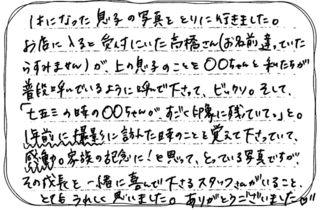 1才になった息子の写真をとりに行きました。
お店に入ると受付にいた高橋さん(お名前違っていたら
すみません)が、上の息子のことを〇〇ちゃんと私たちが
普段呼んでいるように呼んで下さって、ビックリ。そして、
「七五三の時の〇〇ちゃんが、すごく印象に残っていて。」と。
1年前に撮影に訪れた時のことを覚えて下さっていて、
感動。家族の記念に!と思って、とっている写真ですが、
その成長を一緒に喜んで下さるスタッフさんがいること、
とてもうれしく思いました。ありがとうございました